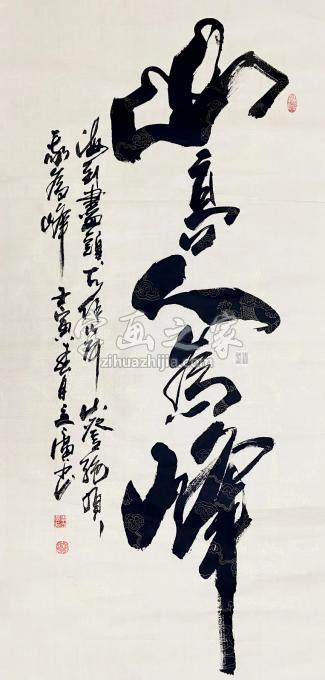 山高人為峰
海到盡頭天作岸山登絕頂
我為峰 壬寅春月立廣书
字画之家
zihuazhijia.com